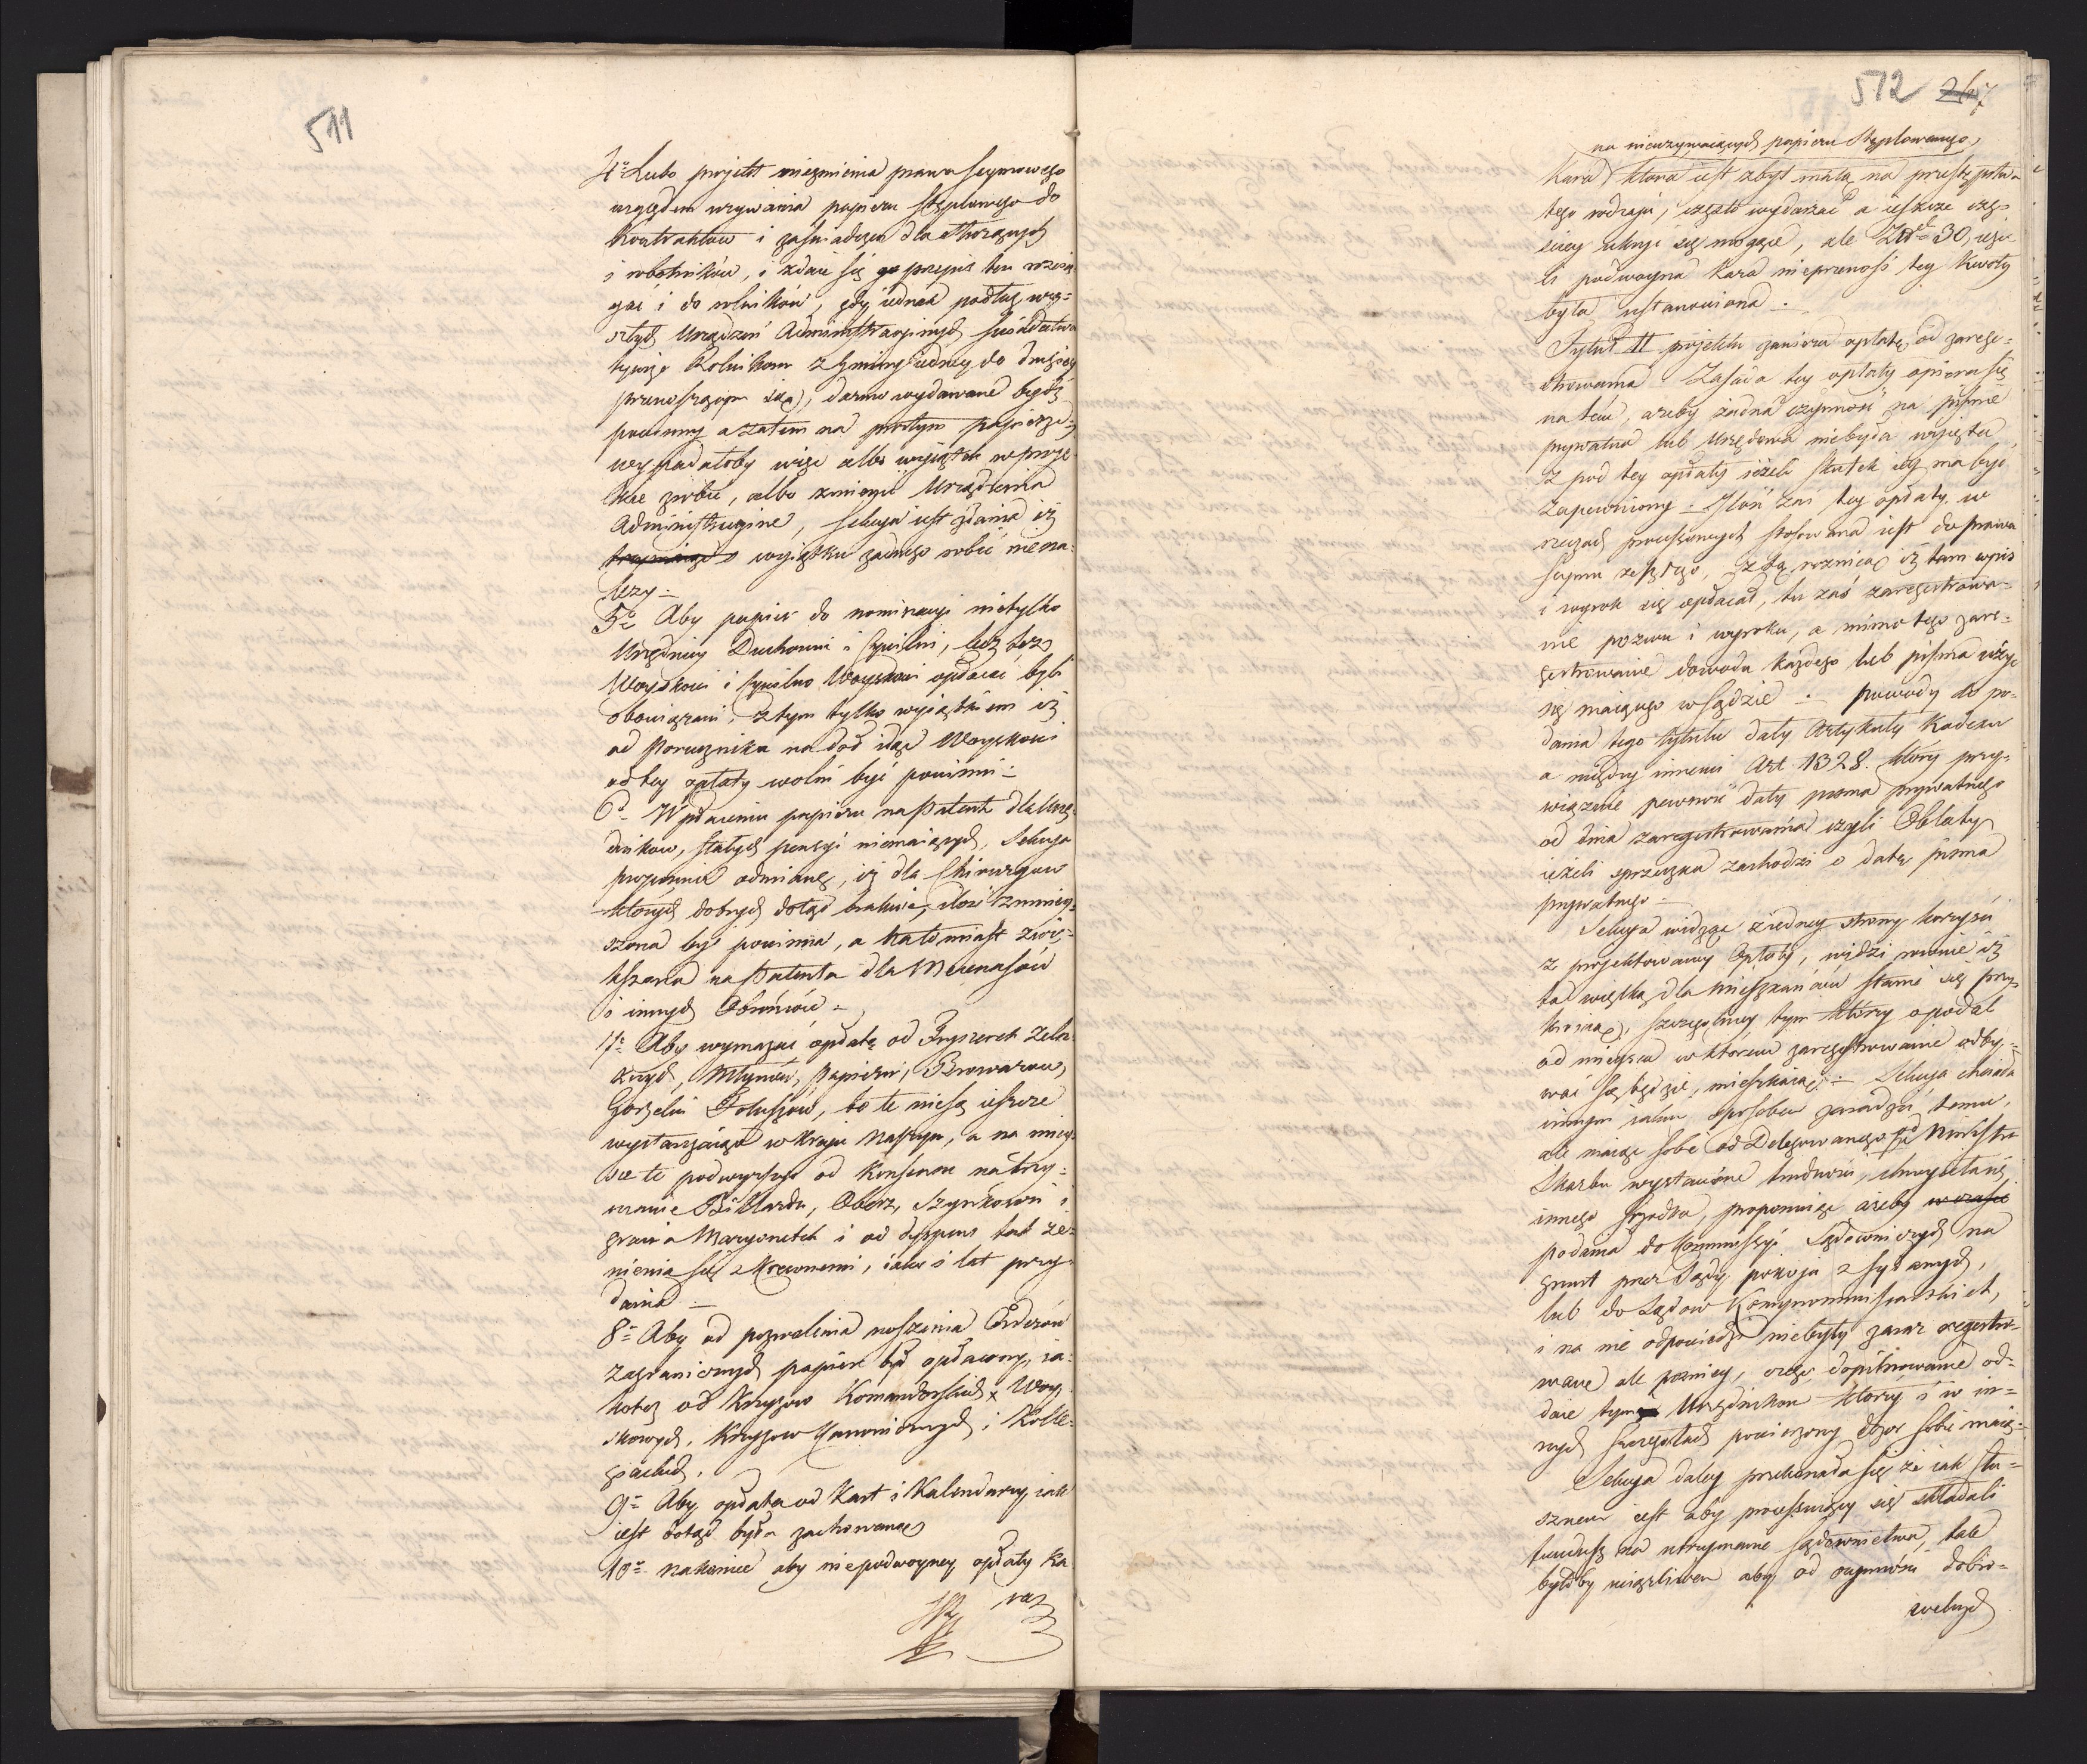 511
4º Lubo projekt niezmienia prawa seymowego
względem używania papieru stęplowego do
kontraktów i zaświadczeń dla służących
i robotników, i zdaie się przepis ten rozcią-
gać i do rolników, gdy iednak podług wszy=
stkich Urządzeń Administracyinych świadectwa
Rolnikom z gminy iedney do drugiey
przenoszącym się, darmo wydawane bydź
powinny a zatem na prostym papierze,
wypadałoby więc albo wyiątek w proje-
kcie zrobić, albo zmienić Urządzenia
Administracyine, Sekcya iest zdania iż
wyiątku żadnego robić niena-
leży.
5º Aby papier do nominacyi nietylko
Urzędnicy Duchowni i Cywilni, lecz też
Woyskowi i Cywilno Woyskowi opłacać byli
obowiązani, z tym tylko wyiątkiem iż
od Porucznika na dół idąc Woyskowi
od tey opłaty wolni być powinni.
6º W płaceniu papieru na Patenta dla Urzę-
dników, stałych pensyi niemaiących, Sekcya
proponuie odmianę, iż dla Chirurgów
których dobrych dotąd brakuie, ilość zmniey-
szona być powinna, a natomiast zwię-
kszona na Patenta dla Mecenasów
i innych Obrońców.
7º Aby wymazać opłatę od Fryszerek żela-
znych, Młynów, Papierni, Browarów,
Gorzelni Foluszów, bo te niesą ieszcze
wystarczaiące w kraju naszym, a na miey-
sce te podwyższyć od konsensu na trzy=
manie Billardu, Oberż, Szynkowni i
grania Maryonetek i od dyspens tak że-
nienia się z Krewnemi, iako i lat przy-
dania.
8º Aby od pozwolenia noszenia Orderów
zagranicznych papier był opłacony, ia-
koteż od Krzyżów Komandorskich x Woy-
skowych, Krzyżow Kanonicznych i Kolle-
giackich.
9º Aby opłata od Kart i Kalendarzy iak
iest dotąd była zachowaną
10º nakoniec aby niepodwoyney opłaty Ka
raz
512
na nieużywaiących papieru Stęplowanego,
Kara która iest zbyt małą na przestępstwa
tego rodzaju, często wydarzać a ieszcze częs
ciey ukryć się mogące, ale Złł 30, ieże-
li podwoyna kara nieprzenosi tey kwoty
była ustanowiona.
Tytuł II projektu zawiera opłatę od zareje-
strowania. Zasada tey opłaty opiera się
na tem, ażeby żadna czynność na piśmie
prywatna lub Urzędowa niebyła wyięta
z pod tey opłaty ieżeli skutek iey ma być
zapewniony. Ilość zaś tey opłaty w
rzeczach processowych stosowana iest do prawa
seymu zeszłego, z tą roznicą iż tam wpis
i wyrok się opłacał, tu zaś zarejestrowa-
nie pozwu i wyroku, a mimo tego zare-
gestrowanie dowodu każdego lub pisma użyć
się maiącego w Sądzie. powody do po-
dania tego tytułu dały Artykuły Kodexu
a między innemi Art. 1328. który przy-
wiązuie pewność daty pisma prywatnego
od dnia zaregestrowania czyli Oblaty
ieżeli sprzeczka zachodzi o datę pisma
prywatnego.
Sekcya widząc z iedney strony korzyści
z projektowaney Opłaty, widzi rownie iż
ta większą dla mieszkańców stanie się przy-
krością, szczególniey tym którzy opodal
od mieysca w którem zaregestrowanie odby-
wać się będzie, mieszkaią. Sekcya chciała
innym iakim sposobem zaradzić temu,
ale maiąc sobie od Delegowanego od Ministra
Skarbu wystawione trudności, chwycić się
innego środka, proponuiąc ażeby
podania do Kommissyi Sądowniczych na
grunt przez Sądy pokoju zsyłanych,
lub do Sądów Kompromissarskich,
i na nie odpowiedzi niebyły zaraz regestro-
wane ale pozniey, czego dopilnowanie od-
daie tymże Urzędnikom którzy i w in-
nych szczegółach powierzony dozor sobie maią.
Sekcya daley przekonała się że iak słu-
szneni iest aby processuiący się składali
fundusz na utrzymanie sądownictwa, tak
byłoby uciążliwem aby od czynności dobro-
wolnych